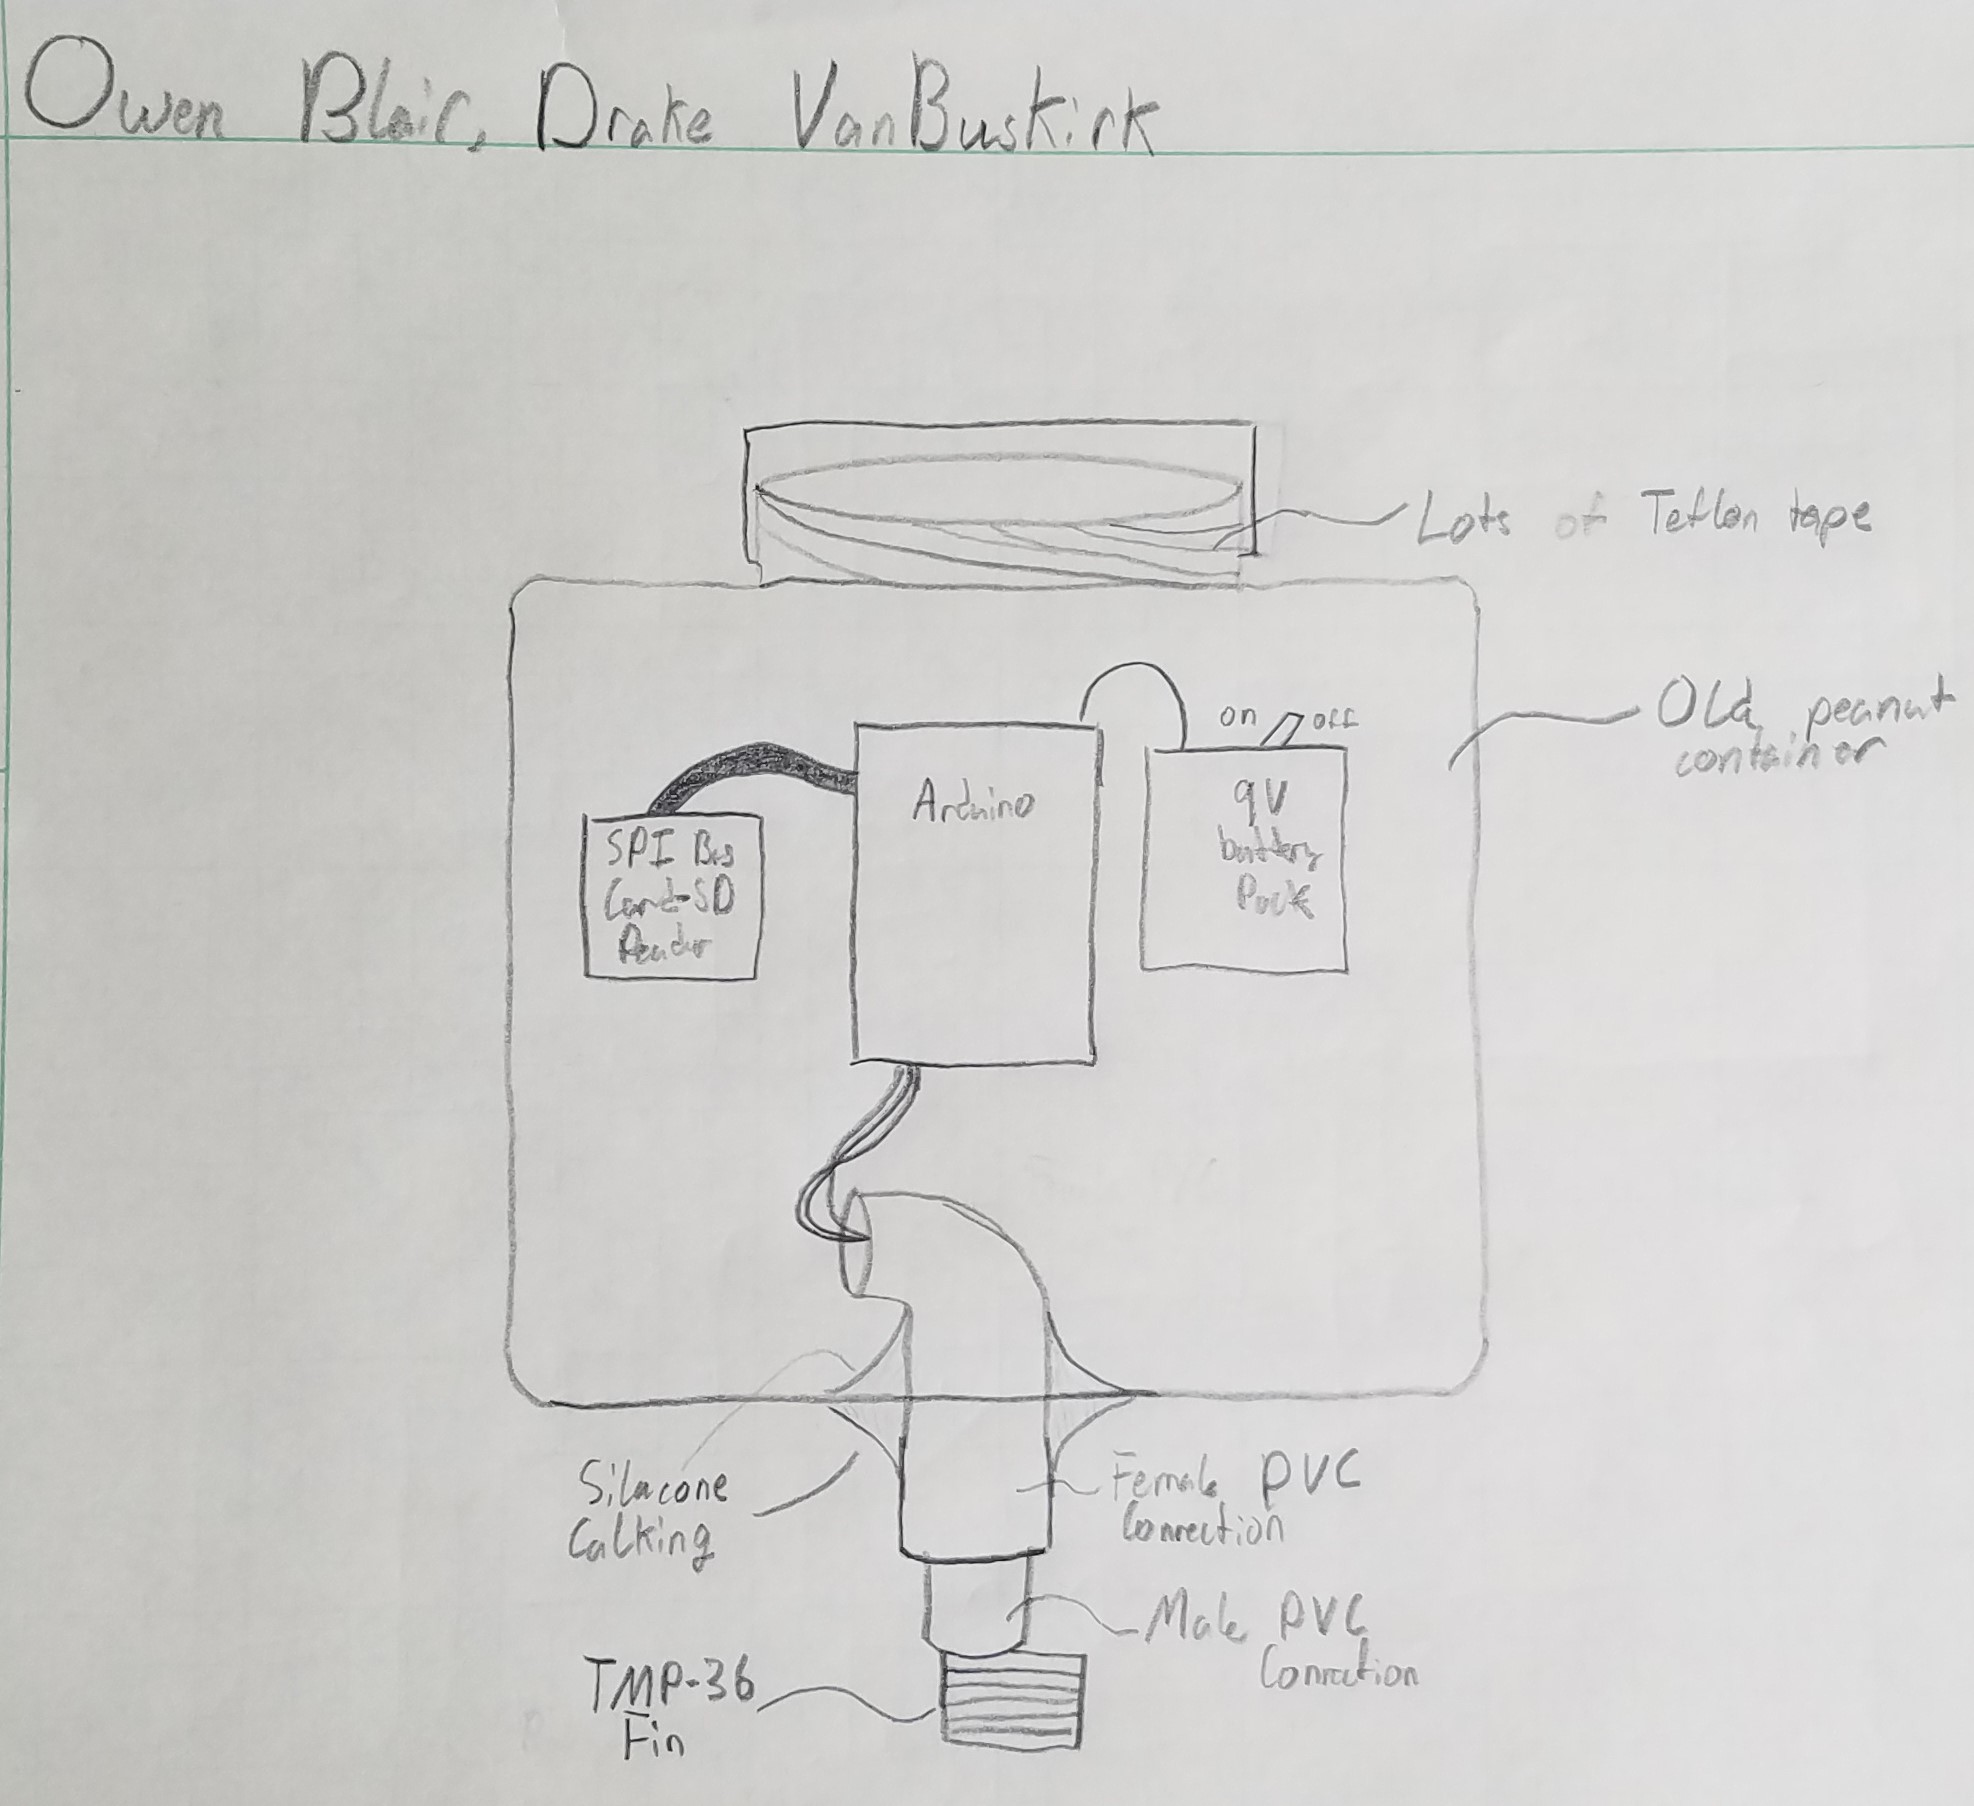 Owen Blair, Drake VanBuskirk
Lots of Teflon tape
Old peanut
container
on off
Arduino
9V
battery
Pack
SPI Bus
Card-SD
Reader
Silacone
Calking
Female PVC
Connection
Male PVC
Connection
TMP-36
Fin